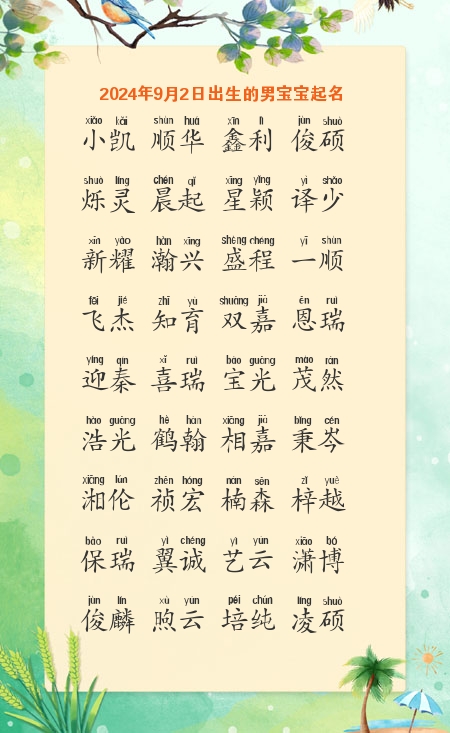 2024年9月2日出生的男宝宝起名
xiǎo kǎi shùn huá xīn lì jùn shuò
小凯 顺华 鑫利 俊硕
shuò líng chén qǐ xīng yǐng yì shǎo
烁灵 晨起 星颖 译少
xīn yào hàn xīng shèng chéng yī shùn
新耀 瀚兴 盛程 一顺
fēi jié zhī yù shuāng jiā ēn ruì
飞杰 知育 双嘉 恩瑞
yíng qín xǐ ruì bǎo guāng mào rán
迎秦 喜瑞 宝光 茂然
hào guāng hè hàn xiāng jiā bǐng cén
浩光 鹤翰 相嘉 秉岑
xiāng lún zhēn hóng nán sēn zǐ yuè
湘伦 祯宏 楠森 梓越
bǎo ruì yì chéng yì yún xiāo bó
保瑞 翼诚 艺云 潇博
jùn lín xù yún péi chún líng shuò
俊麟 煦云 培纯 凌硕